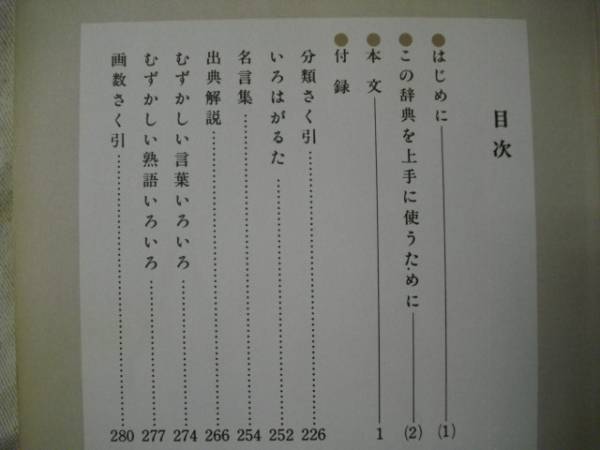 目次
●はじめに (1)
●この辞典を上手に使うために (2)
●本文 1
●付録
分類さく引 226
いろはがるた 252
名言集 254
出典解説 266
むずかしい言葉いろいろ 274
むずかしい熟語いろいろ 277
画数さく引 280